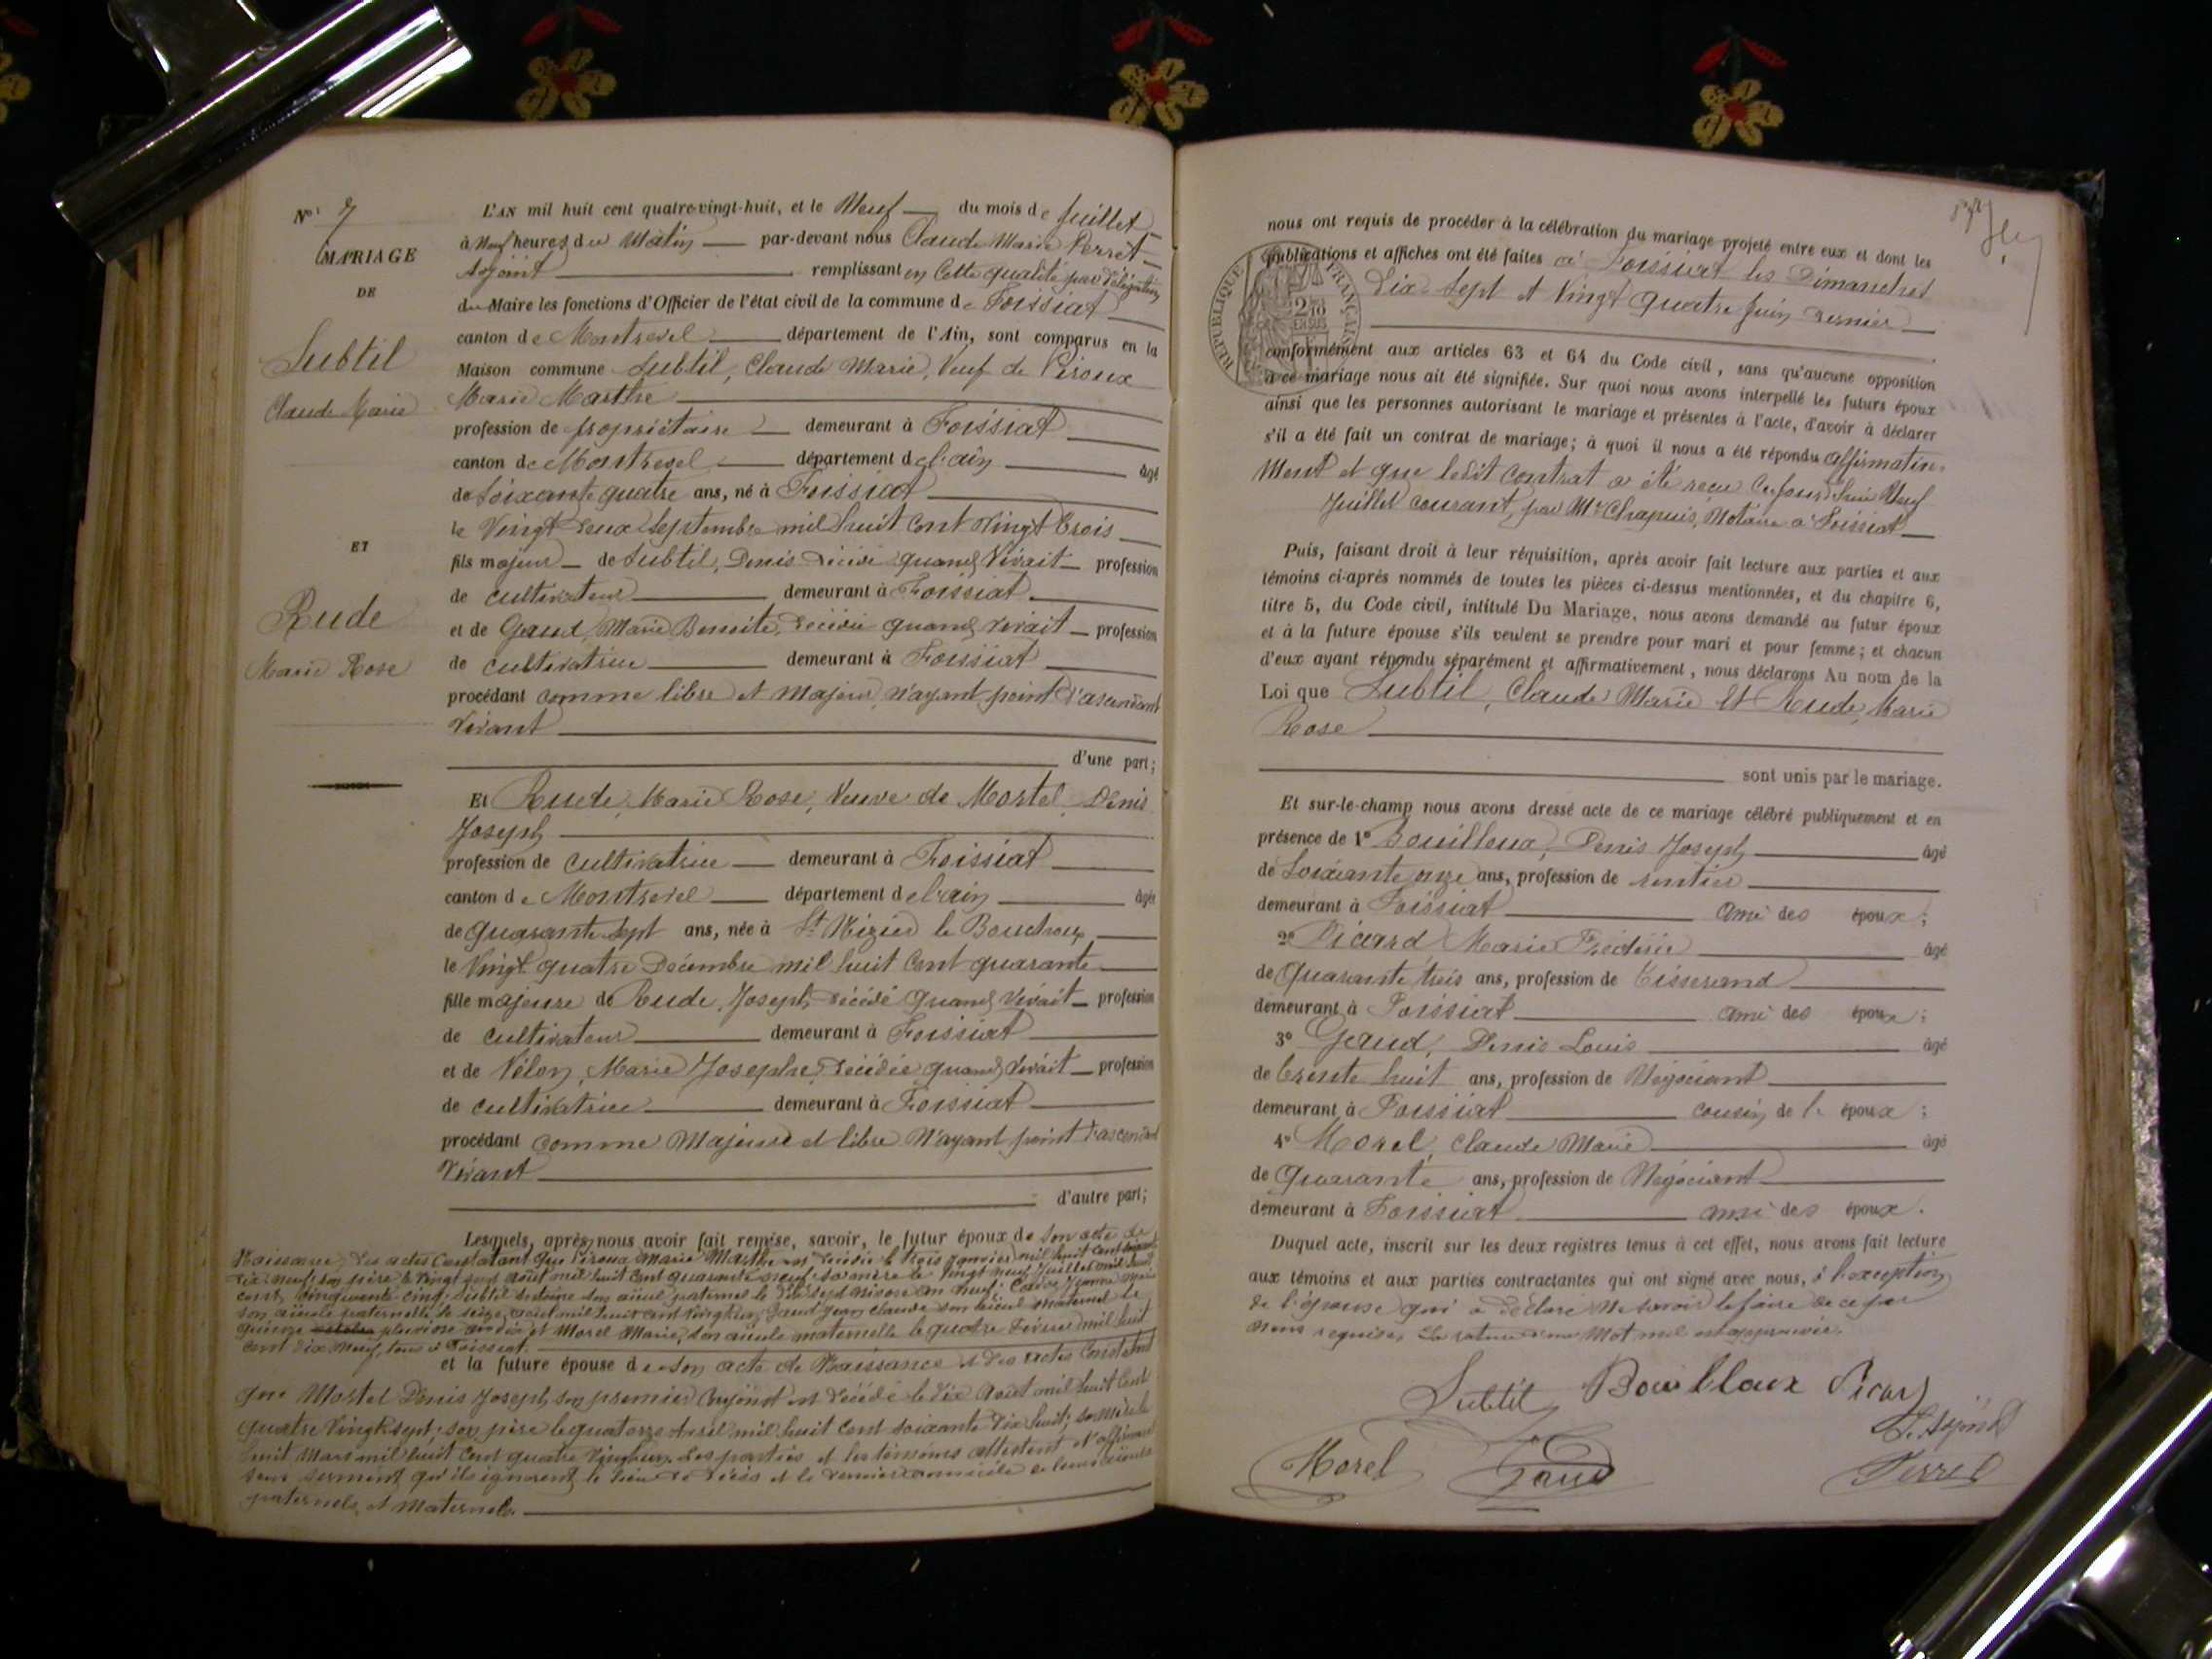 N° 7
MARIAGE
DE
Subtil
Claude Marie
ET
Rude
Marie Rose
L'AN mil huit cent quatre-vingt-huit, et le Neuf du mois de Juillet
à Neuf heures du Matin par-devant nous Claude Marie Perret
Adjoint remplissant en Cette qualité par délégation
du Maire les fonctions d'Officier de l'état civil de la commune de Foissiat
canton de Montrevel département de l'Ain, sont comparus en la
Maison commune Subtil, Claude Marie, Veuf de Piroux
Marie Marthe
profession de propriétaire demeurant à Foissiat
canton de Montrevel département de l'ain âgé
de Soixante quatre ans, né à Foissiat
le Vingt deux Septembre mil huit Cent Vingt Trois
fils majeur de Subtil, Denis décédé quand Vivait profession
de cultivateur demeurant à Foissiat
et de Gaud, Marie Benoite, décédée quand vivait profession
de cultivatrice demeurant à Foissiat
procédant comme libre et Majeur, n'ayant point d'ascendant
Vivant
d'une part;
Et Rude, Marie Rose, Veuve de Mortel, Denis
Joseph
profession de cultivatrice demeurant à Foissiat
canton de Montrevel département de l'ain âgée
de quarante sept ans, née à St Nizier le Bouchoux
le Vingt quatre Décembre mil huit Cent quarante
fille majeure de Rude, Joseph, décédé quand Vivait profession
de cultivateur demeurant à Foissiat
et de Vélon, Marie Josephe, décédée quand vivait profession
de cultivatrice demeurant à Foissiat
procédant comme Majeure et libre N'ayant point d'ascendant
Vivant
d'autre part;
Lesquels, après nous avoir fait remise, savoir, le futur époux de son acte de
Naissance, des actes Constatant que Piroux Marie Marthe est décédée le trois Janvier mil huit cent soixante
dix neuf; son père le Vingt août mil huit Cent quarante neuf; sa mère le Vingt neuf Juillet mil huit
cent cinquante cinq; Subtil Antoine son aïeul paternel le dix sept nivose an neuf; Jeanne Marie
son aïeule paternelle le seize août mil huit cent vingt; Gaud Jean Claude son aïeul maternel le
quinze pluviose an dix et Morel Marie, son aïeule maternelle le quatre Février mil huit
cent dix Neuf, tous à Foissiat.
et la future épouse de son acte de Naissance et des actes Constatant
que Mortel Denis Joseph son premier Conjoint est décédé le dix Août mil huit Cent
quatre Vingt sept; son père le quatorze Avril mil huit Cent soixante dix huit; sa mère le
huit Mars mil huit Cent quatre Vingt. Les parties et les témoins attestent et affirment
sous serment qu'ils ignorent le lieu de décès et le dernier domicile de leurs aïeuls
paternels, et Maternels.
nous ont requis de procéder à la célébration du mariage projeté entre eux et dont les
publications et affiches ont été faites à Foissiat les Dimanches
Dix Sept et Vingt quatre Juin dernier
RÉPUBLIQUE FRANÇAISE
2/10
EN SUS
conformément aux articles 63 et 64 du Code civil, sans qu'aucune opposition
à ce mariage nous ait été signifiée. Sur quoi nous avons interpellé les futurs époux
ainsi que les personnes autorisant le mariage et présentes à l'acte, d'avoir à déclarer
s'il a été fait un contrat de mariage; à quoi il nous a été répondu affirmative-
ment et que ledit contrat a été reçu Ce jourd'hui Neuf
Juillet courant, par Me Chapuis, Notaire à Foissiat
Puis, faisant droit à leur réquisition, après avoir fait lecture aux parties et aux
témoins ci-après nommés de toutes les pièces ci-dessus mentionnées, et du chapitre 6,
titre 5, du Code civil, intitulé Du Mariage, nous avons demandé au futur époux
et à la future épouse s'ils veulent se prendre pour mari et pour femme; et chacun
d'eux ayant répondu séparément et affirmativement, nous déclarons Au nom de la
Loi que Subtil, Claude Marie Et Rude, Marie
Rose
sont unis par le mariage.
Et sur-le-champ nous avons dressé acte de ce mariage célébré publiquement et en
présence de 1° Bouilloux, Denis Joseph âgé
de Soixante onze ans, profession de rentier
demeurant à Foissiat ami des époux;
2° Picard Marie Frédéric âgé
de Quarante trois ans, profession de Tisserand
demeurant à Foissiat ami des époux;
3° Gaud, Denis Louis âgé
de trente huit ans, profession de Négociant
demeurant à Foissiat cousin de l'époux;
4° Morel, Claude Marie âgé
de Quarante ans, profession de Négociant
demeurant à Foissiat ami des époux.
Duquel acte, inscrit sur les deux registres tenus à cet effet, nous avons fait lecture
aux témoins et aux parties contractantes qui ont signé avec nous, à l'exception
de l'épouse qui a déclaré ne savoir le faire de ce par
nous requise. La rature d'un Mot nul est approuvée.
Subtil Bouilloux Picard
L'Adjoint
Morel Gaud Perret